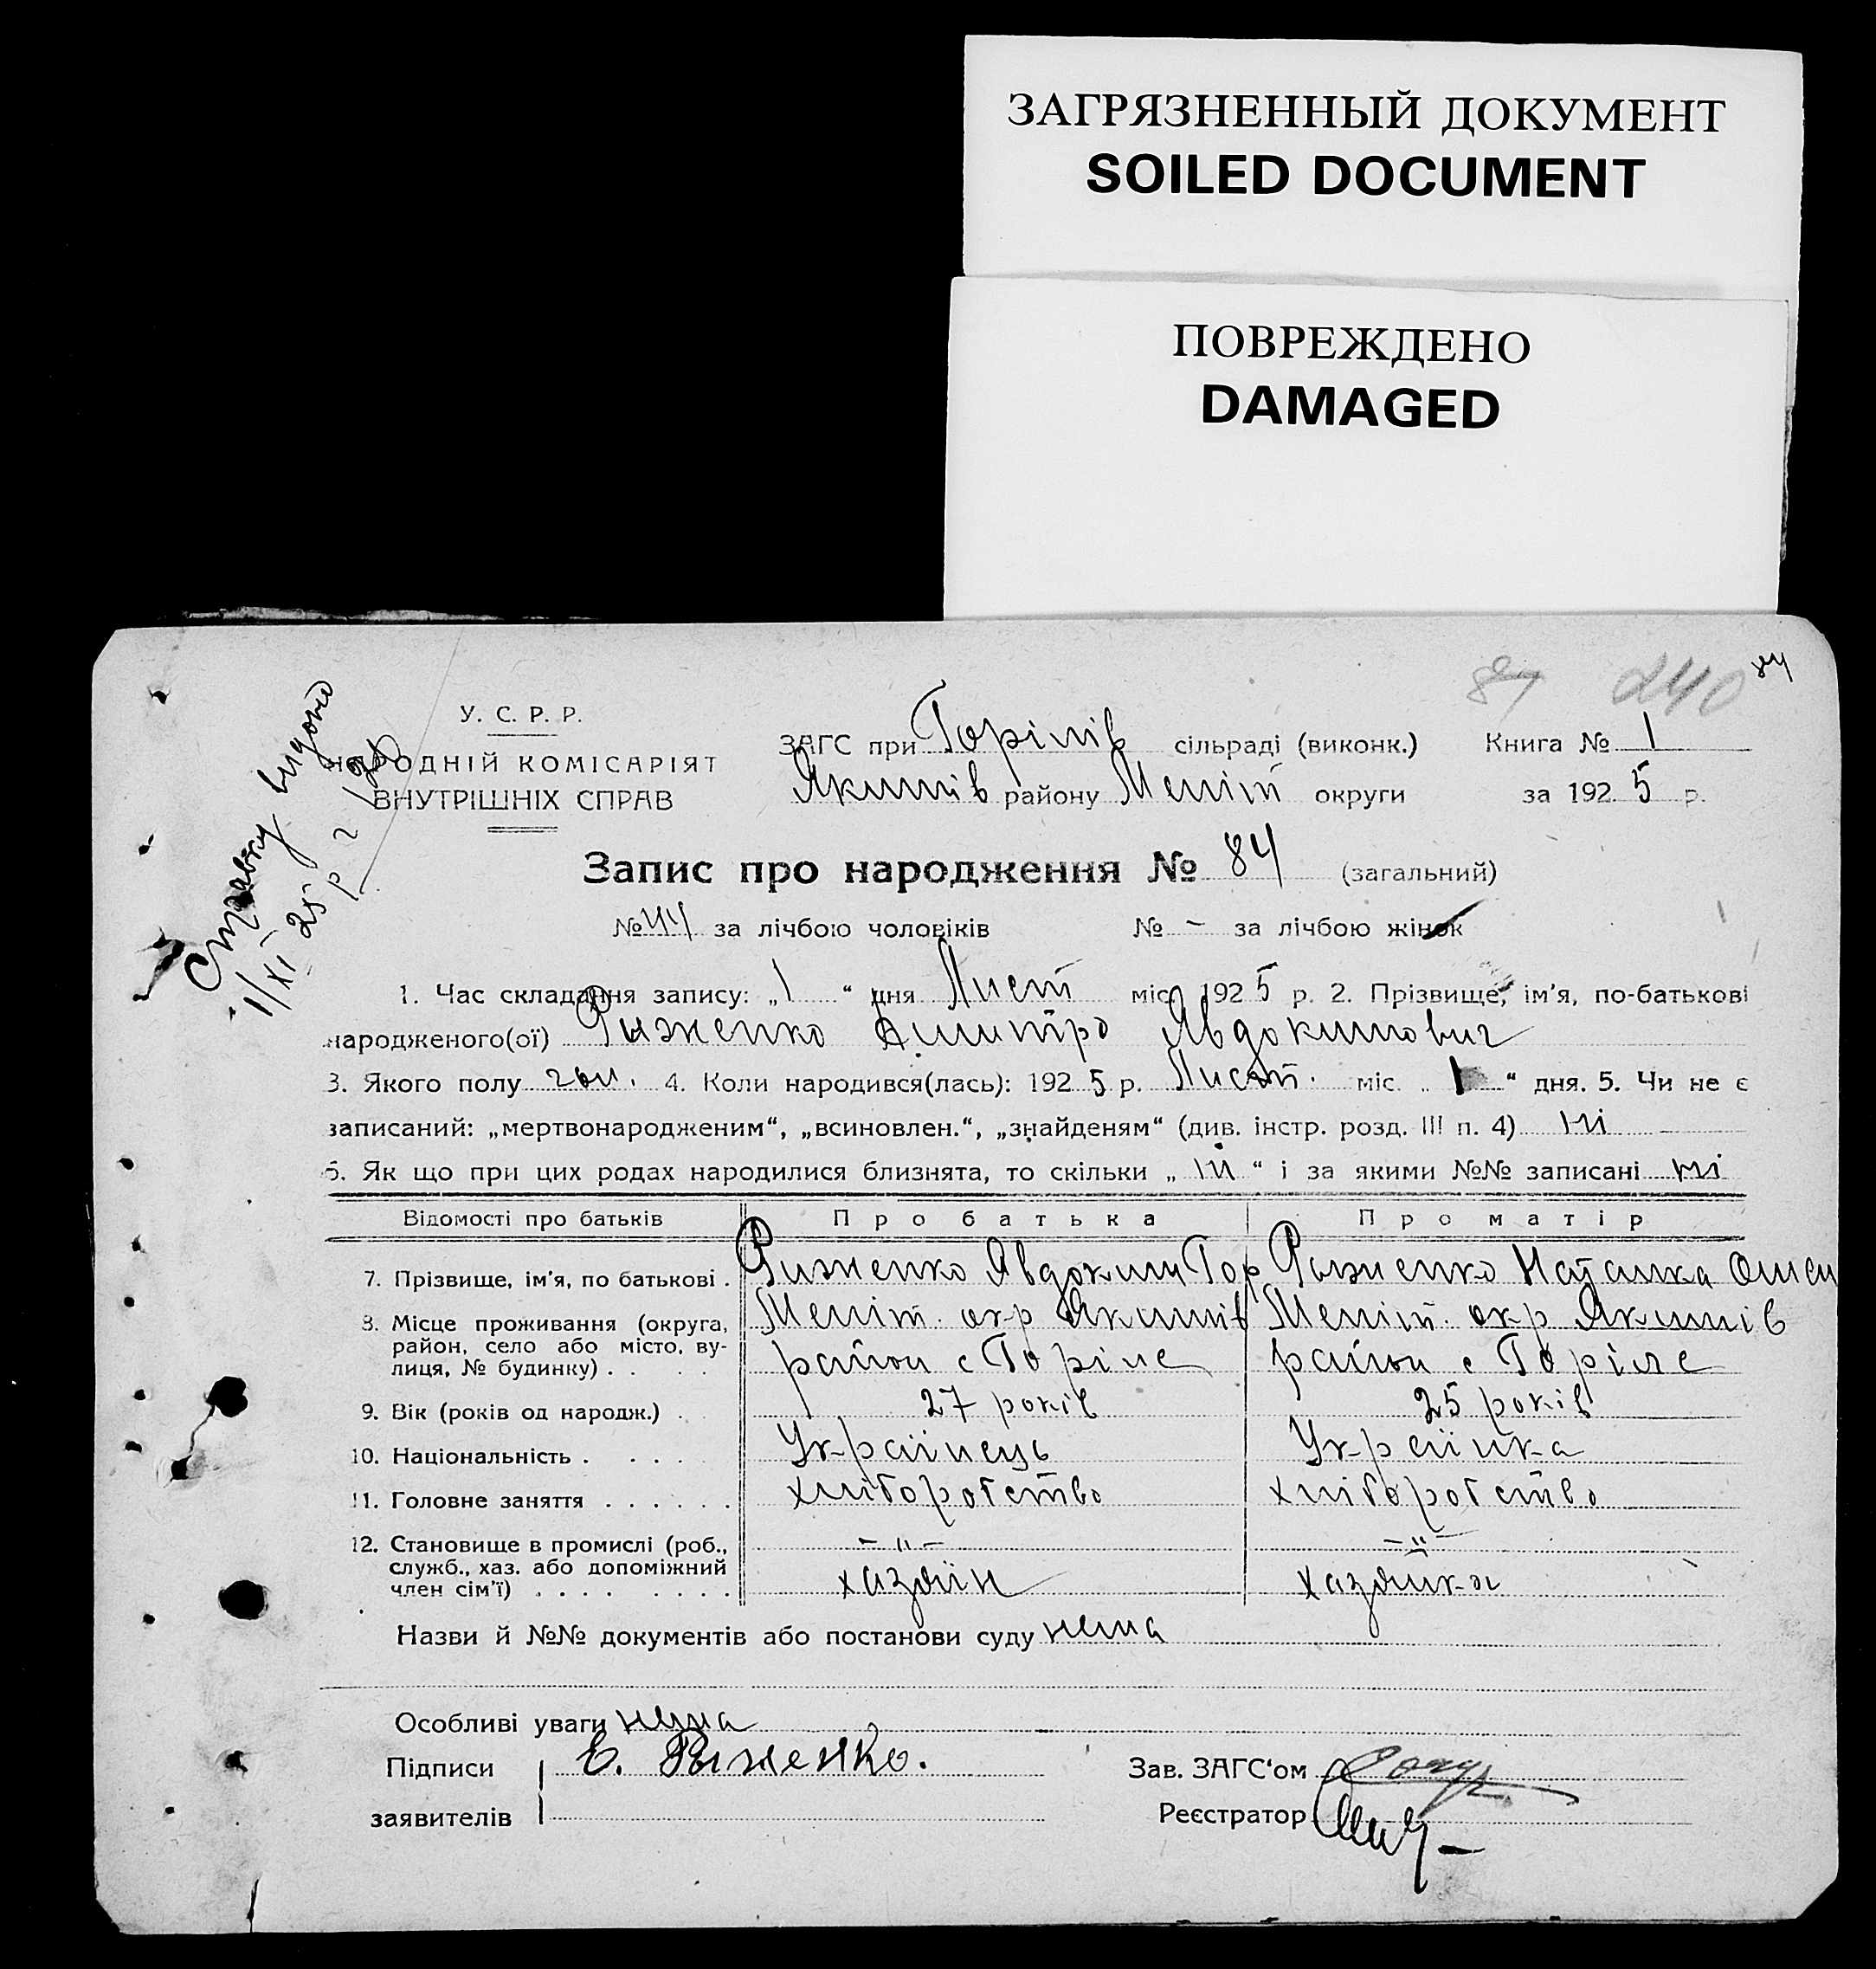 ЗАГРЯЗНЕННЫЙ ДОКУМЕНТ
SOILED DOCUMENT
ПОВРЕЖДЕНО
DAMAGED
84 240 84
Справку видано
1/XI 25 р
У. С. Р. Р.
НАРОДНІЙ КОМІСАРІЯТ
ВНУТРІШНІХ СПРАВ
ЗАГС при Горілів сільраді (виконк.) Книга № 1
Якимів району Меліт округи за 1925 р.
Запис про народження № 84 (загальний)
№ 44 за лічбою чоловіків № - за лічбою жінок
1. Час складання запису: „1“ дня Лист міс. 1925 р. 2. Прізвище, ім’я, по-батькові
народженого(ої) Рыженко Дмитро Явдокимович
3. Якого полу чол. 4. Коли народився(лась): 1925 р. Лист. міс. „1“ дня. 5. Чи не є
записаний: „мертвонародженим“, „всиновлен.“, „знайденям“ (див. інстр. розд. III п. 4) ні
6. Як що при цих родах народилися близнята, то скільки „ні“ і за якими №№ записані ні
Відомості про батьків Про батька Про матір
7. Прізвище, ім’я, по батькові . Рыженко Явдоким Гор Рыженко Наталка Омел
8. Місце проживання (округа, Меліт. окр Якимів Меліт. окр Якимів
район, село або місто, ву- район с Горіле район с Горіле
лиця, № будинку) . . . .
9. Вік (років од народж.) . 27 років 25 років
10. Національність . . . . . Українець Українка
11. Головне заняття . . . . . . хліборобство хліборобство
12. Становище в промислі (роб., – " – – " –
служб., хаз. або допоміжний хазяїн хазяйка
член сім’ї) . . . . . . . .
Назви й №№ документів або постанови суду нема
Особливі уваги нема
Підписи Е. Рыженко. Зав. ЗАГС‘ом
заявителів Реєстратор